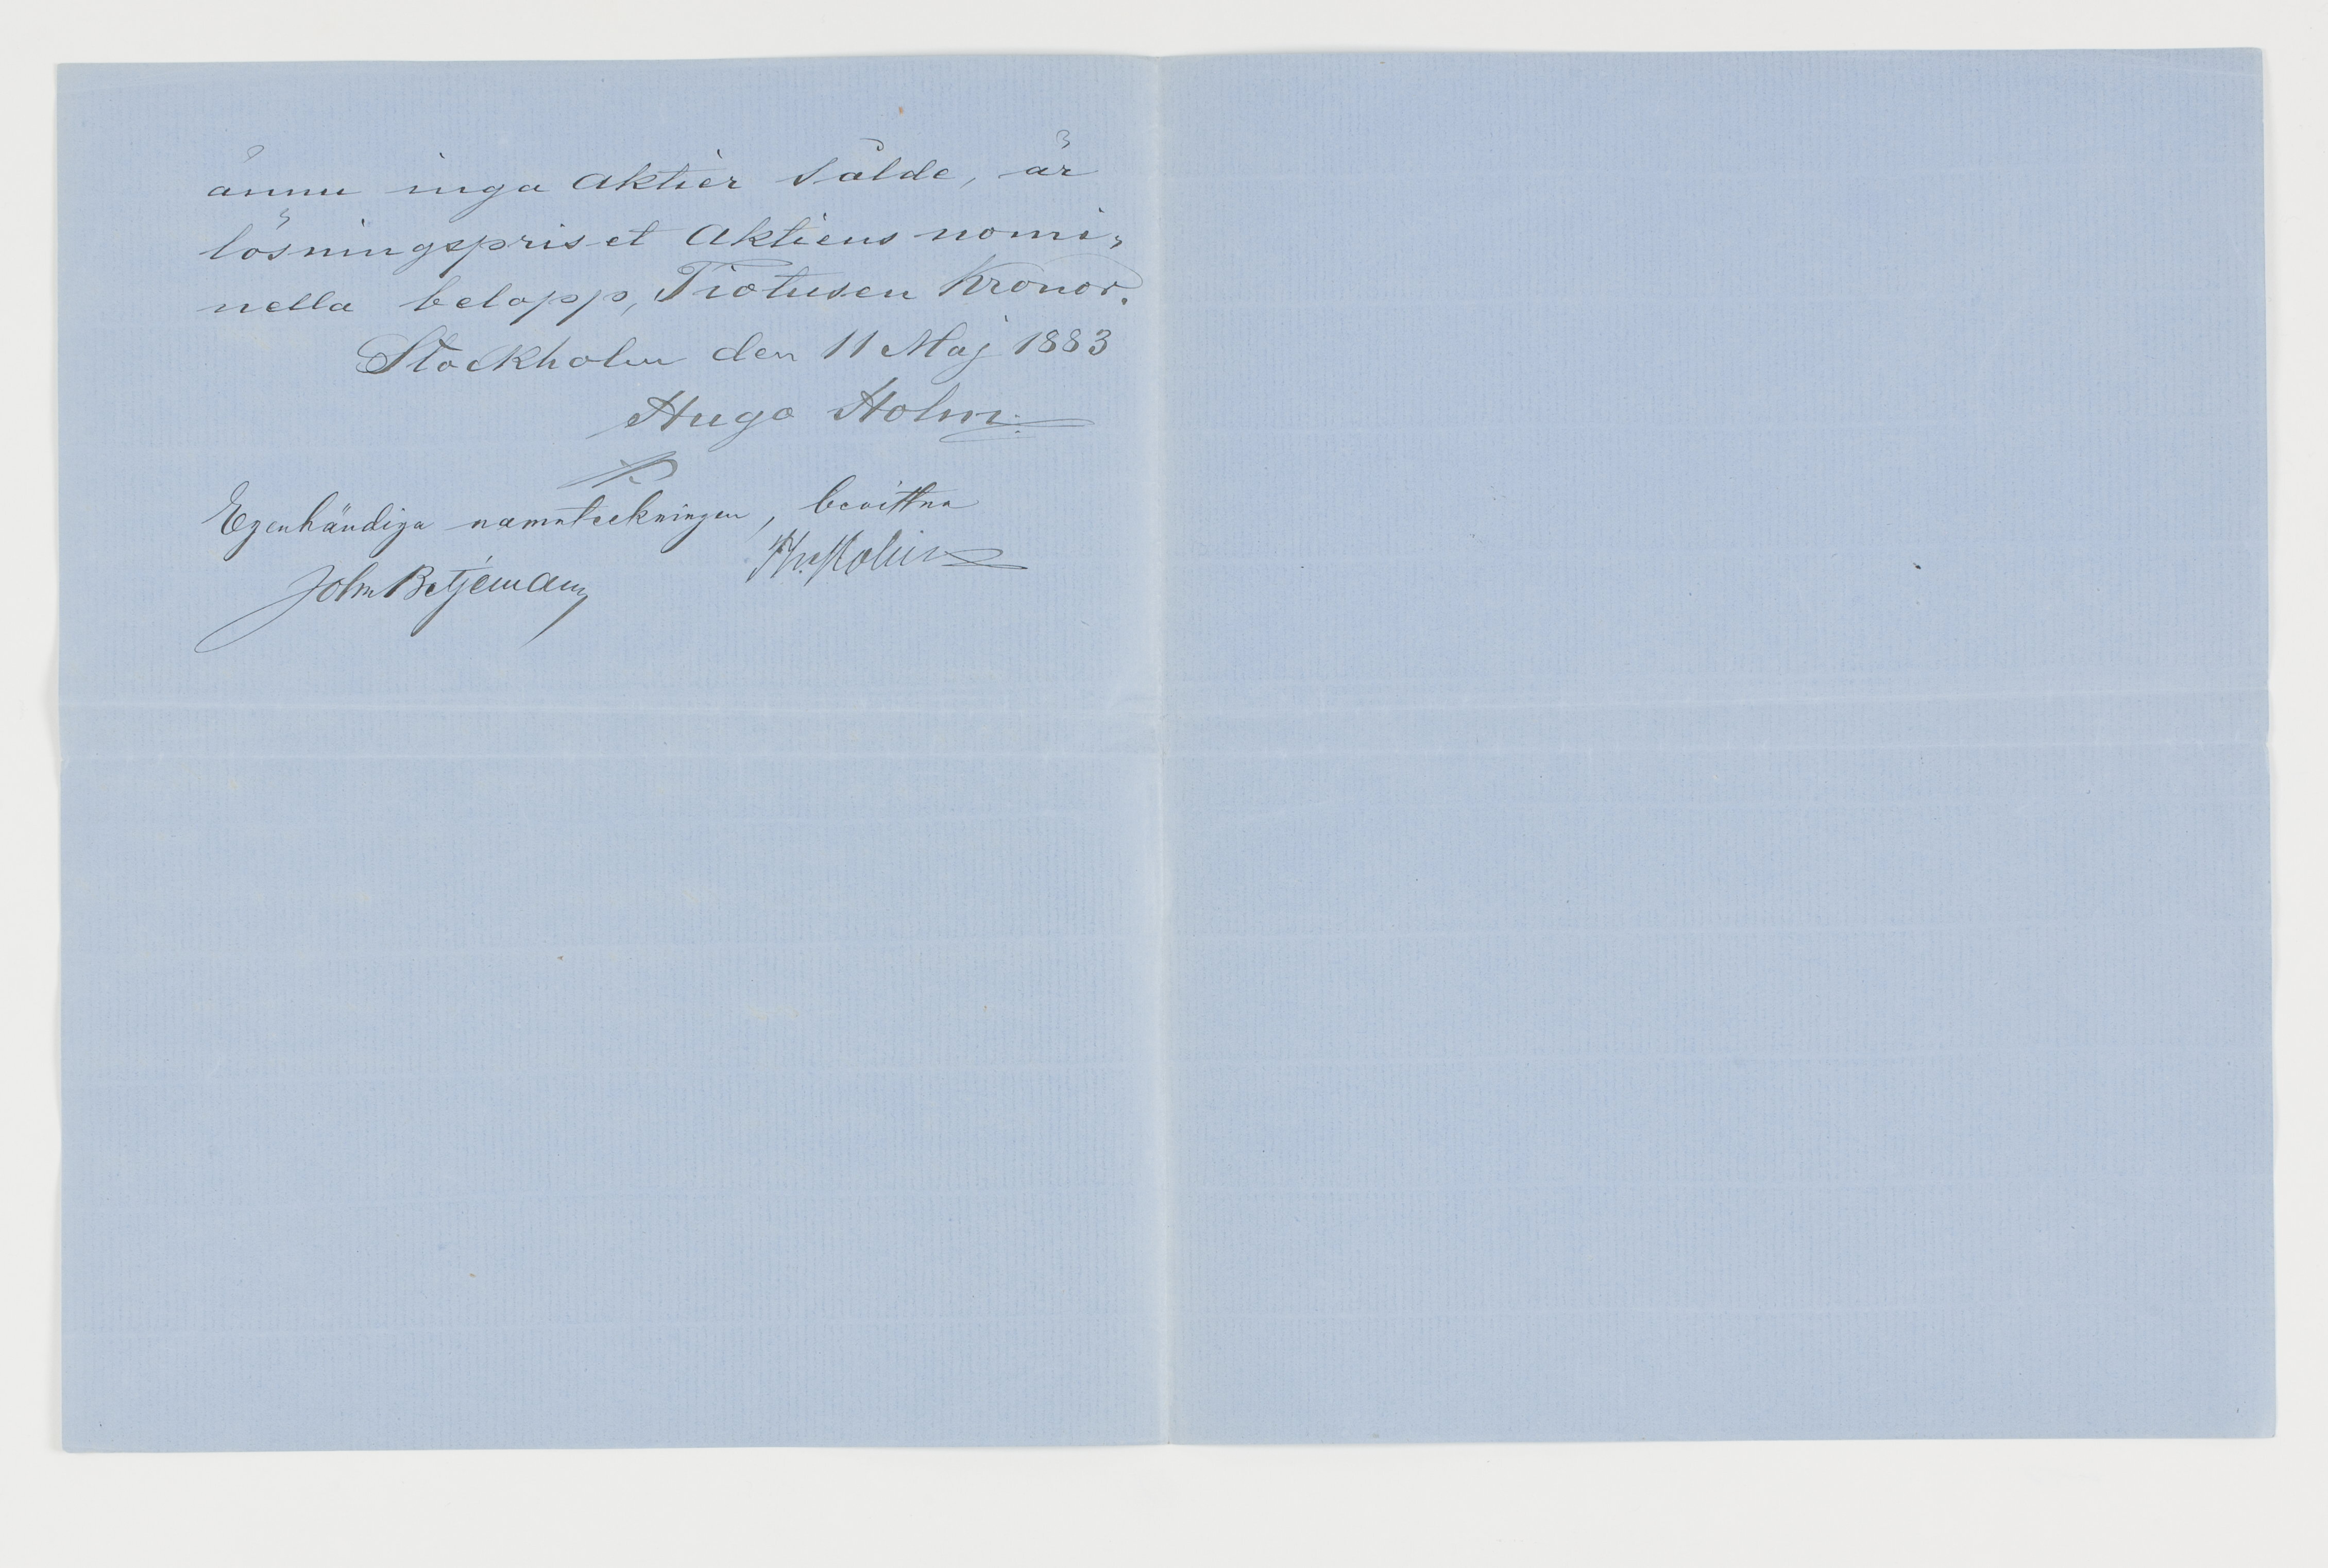 ännu inga aktier sålde, är
lösningspriset aktiens nomi-
nella belopp, Tiotusen Kronor.
Stockholm den 11 Maj 1883
Hugo Holm
Egenhändiga namnteckningen, bevittna
John Betjemann